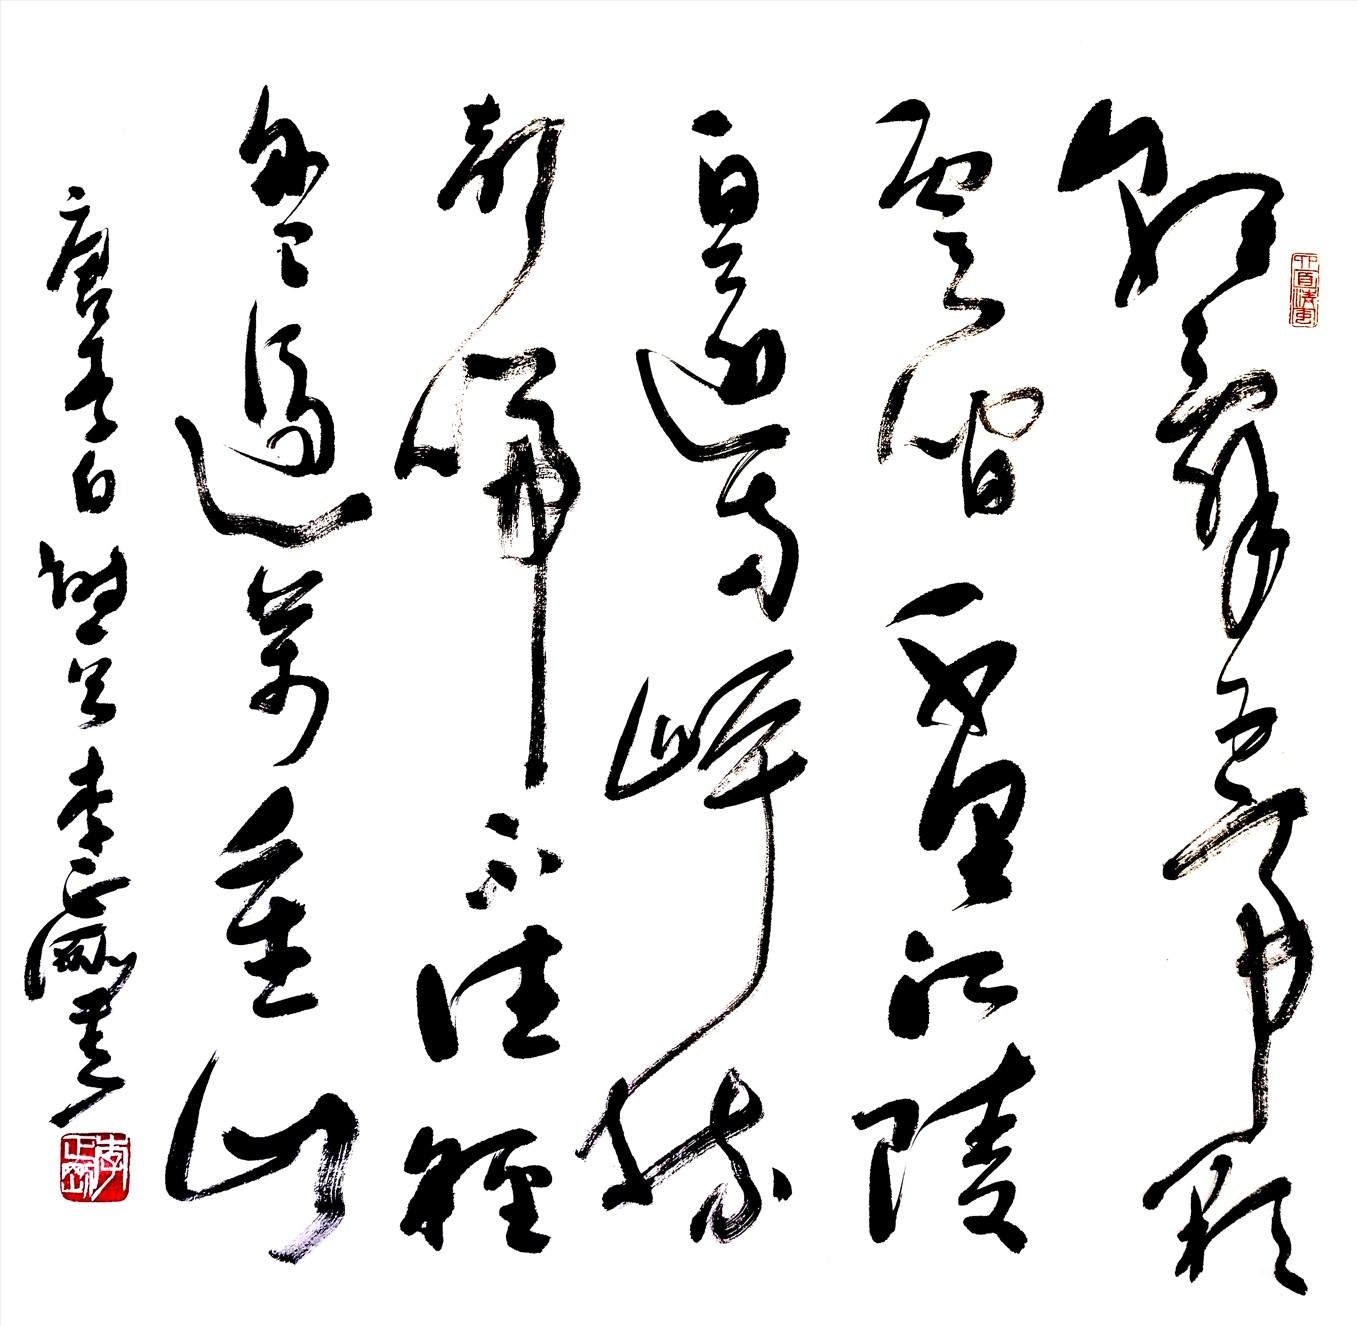 朝辭白帝彩
雲間千里江陵
一日還两岸猿
聲啼不住輕
舟已過萬重山
唐李白詩一首李正書